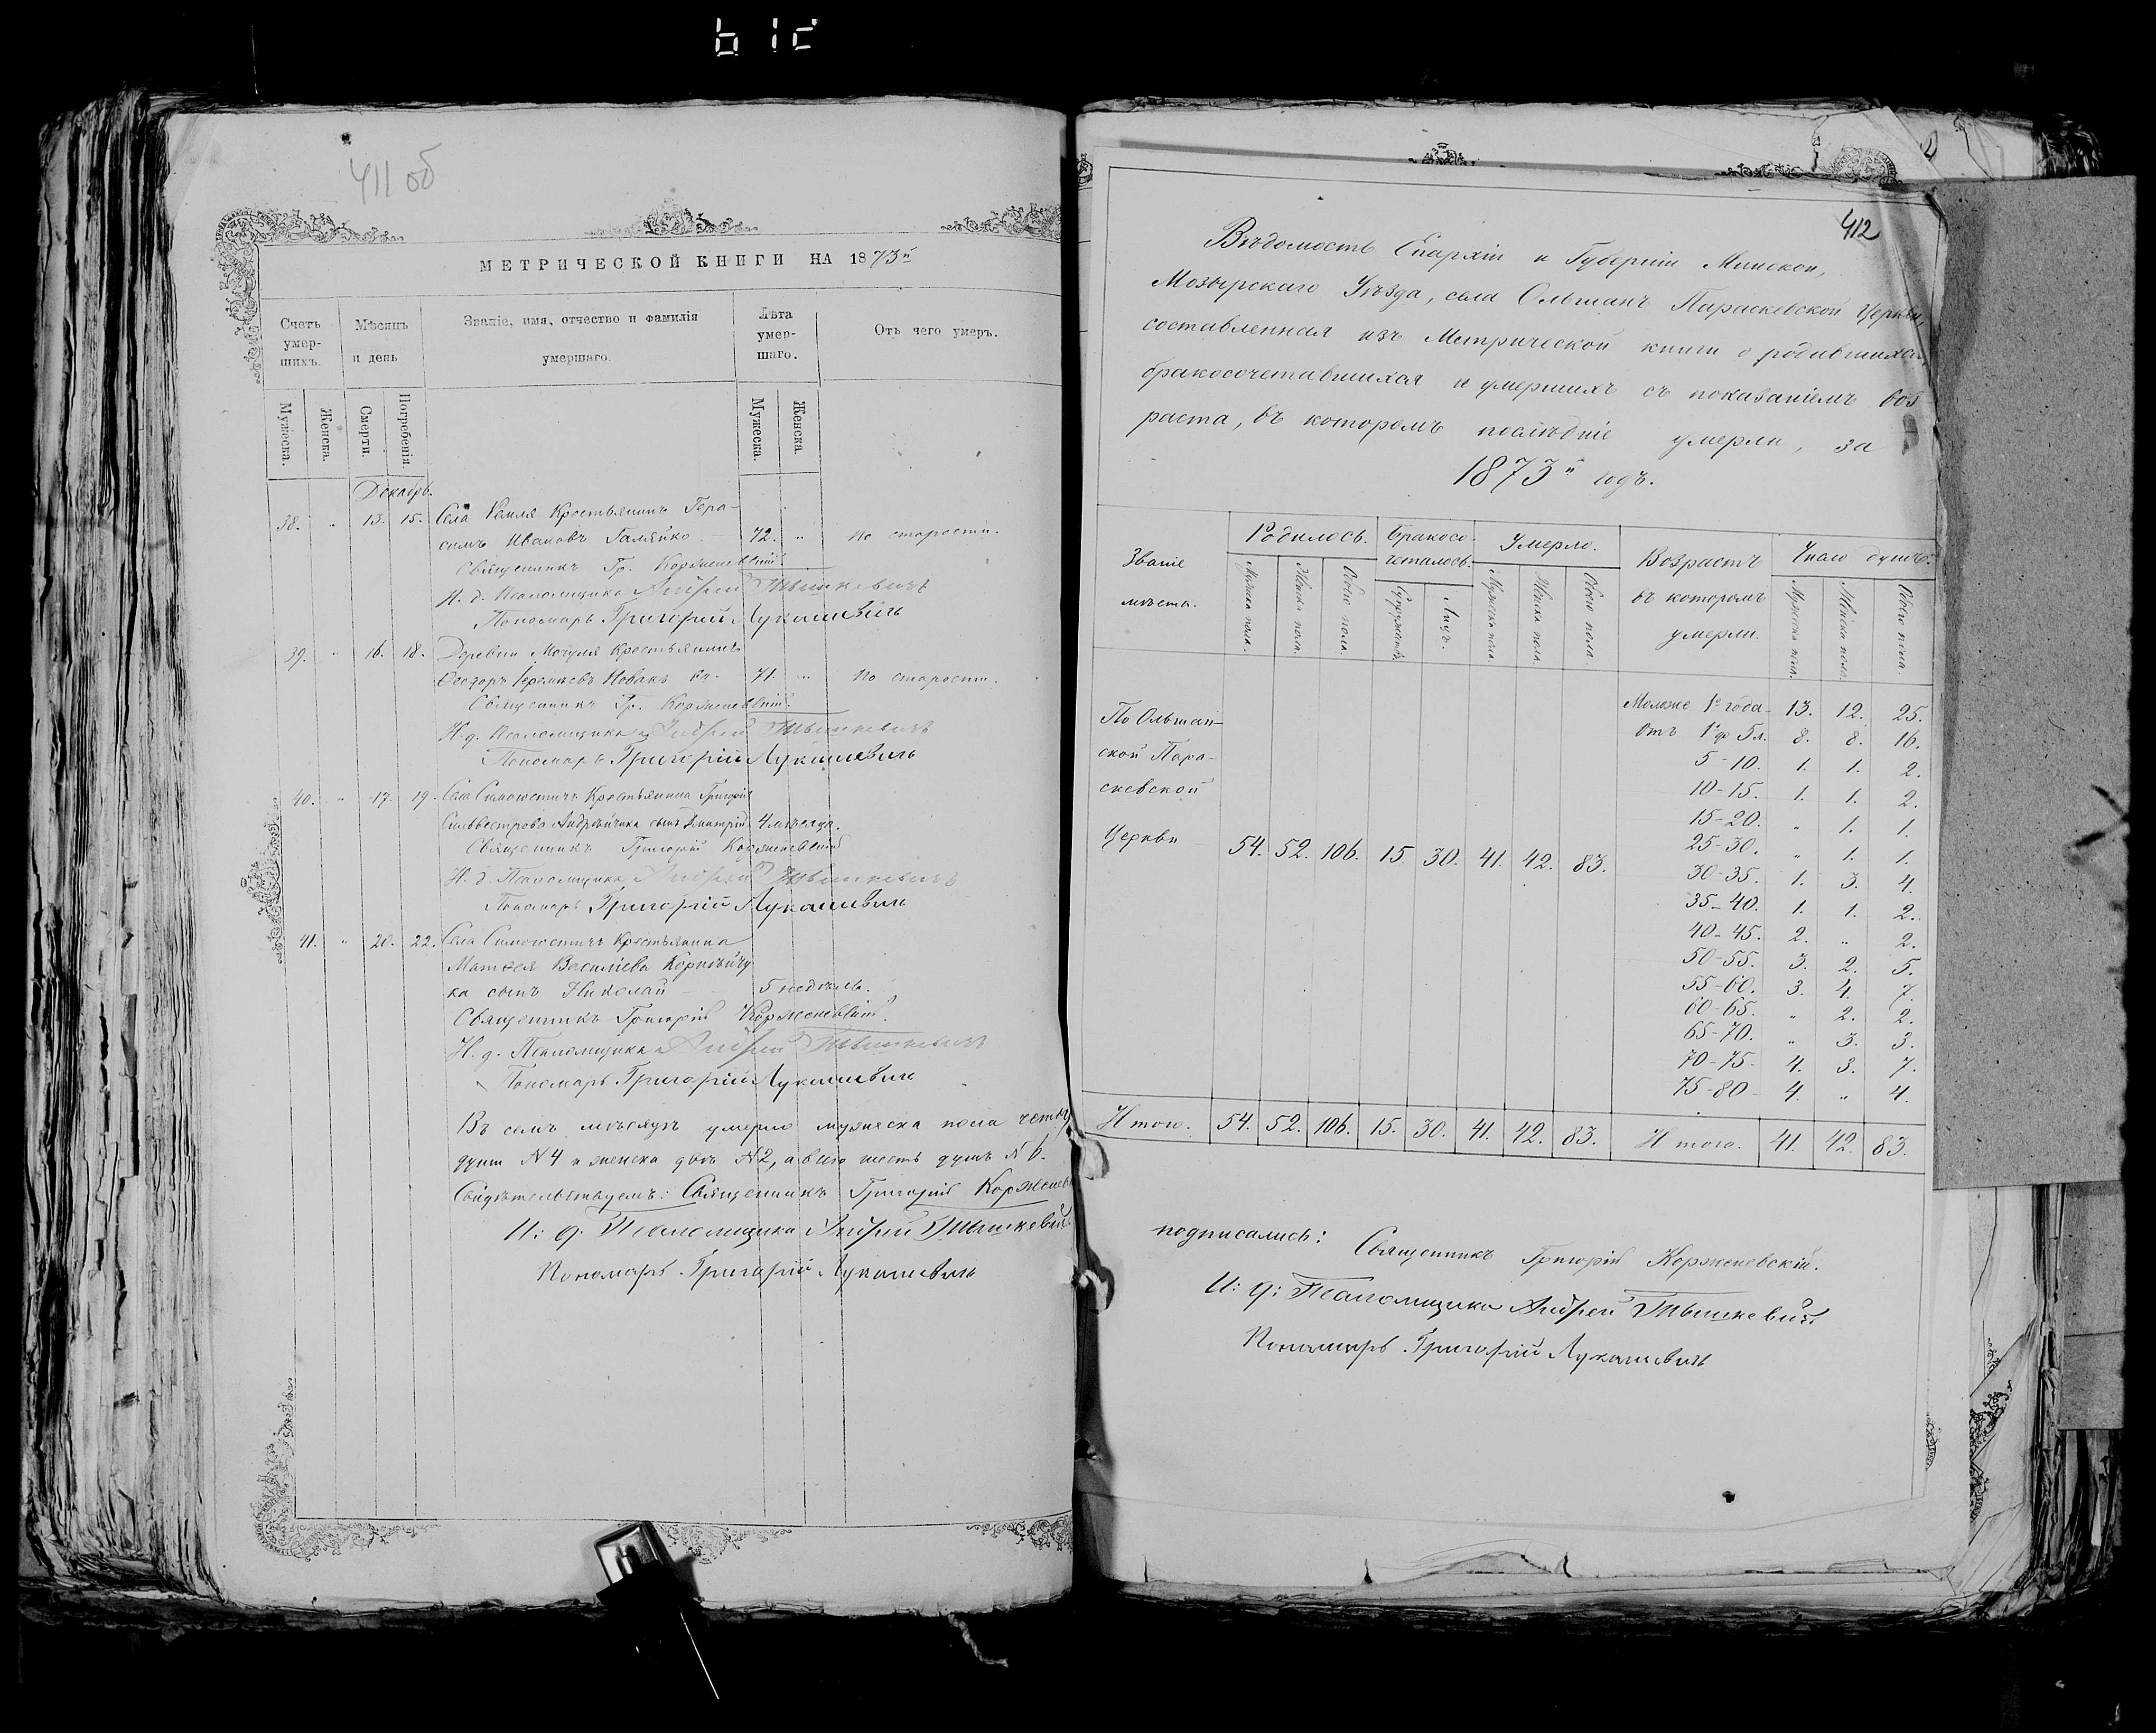 411 об
МЕТРИЧЕСКОЙ КНИГИ НА 1873й
Счетъ умер-шихъ.
Мѣсяцъ и день
Званіе, имя, отчество и фамилія умершаго.
Лѣта умер-шаго.
Отъ чего умеръ.
Мужеска. Женска. Смерти. Погребенія. Мужеска. Женска.
Декабрь.
38. " 13. 15. Села Крестьянинъ Гера-
симъ Ивановъ Гамейко 72. " по старости.
Священникъ Гр. Корженевскій.
И. д. Псаломщика Андрей Тышкевичъ
Пономарь Григорій Лукашевичь
39. " 16. 18. Деревни Крестьянинъ
Ѳеодоръ Новакъ 71. " по старости.
Священникъ Гр. Корженевскій.
И. д. Псаломщика Андрей Тышкевичъ
Пономарь Григорій Лукашевичь
40. " 17. 19. Села Крестьянина Григорія
Сильвестрова сынъ Димитрій 4 мѣсяца.
Священникъ Григорій Корженевскій
И. д. Псаломщика Андрей Тышкевичъ
Пономарь Григорій Лукашевичь
41. " 20. 22. Села Крестьянина
Матѳея Василіева
ка сынъ Николай 5 недѣль.
Священникъ Григорій Корженевскій.
И. д. Псаломщика Андрей Тышкевичъ
Пономарь Григорій Лукашевичь
Въ семъ мѣсяцѣ умерло мужеска пола четы
душ №4 и женска двѣ №2, а всего шесть душъ №6.
Свидѣтельствуемъ: Священникъ Григорій Коржене
И: д. Псаломщика Андрей Тышкевич
Пономарь Григорій Лукашевичь
412
Вѣдомость Епархіи и Губерніи Минской,
Мозырскаго Уѣзда, села Ольманъ Параскевской Церкви,
составленная изъ Метрической книги о родившихся,
бракосочетавшихся и умершихъ съ показаніемъ воз
раста, въ которомъ послѣдніе умерли, за
1873й годъ.
Званіе мѣста.
Родилось. Бракосо-четалось. Умерло.
Возрастъ въ которомъ умерли.
Число душъ.
Мужеска пола. Женска пола. Обоего пола. Супружествъ. Лицъ. Мужеска пола. Женска пола. Обоего пола. Мужеска пола. Женска пола. Обоего пола.
По Ольман-
ской Пара-
скевской
Церкви 54. 52. 106. 15. 30. 41. 42. 83.
Моложе 1го года 13. 12. 25.
Отъ 1го до 5 л. 8. 8. 16.
5-10. 1. 1. 2.
10-15. 1. 1. 2.
15-20. " 1. 1.
25-30. " 1. 1.
30-35. 1. 3. 4.
35-40. 1. 1. 2.
40-45. 2. " 2.
50-55. 3. 2. 5.
55-60. 3. 4. 7.
60-65. " 2. 2.
65-70. " 3. 3.
70-75. 4. 3. 7.
75-80 4. " 4.
Итого. 54. 52. 106. 15. 30. 41. 42. 83. Итого. 41. 42. 83.
подписались: Священникъ Григорій Корженевскій.
И: д: Псаломщика Андрей Тышкевичъ
Пономарь Григорій Лукашевичь